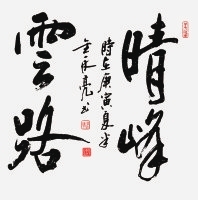 晴峰
雲路
時在庚寅夏半
金永亮書